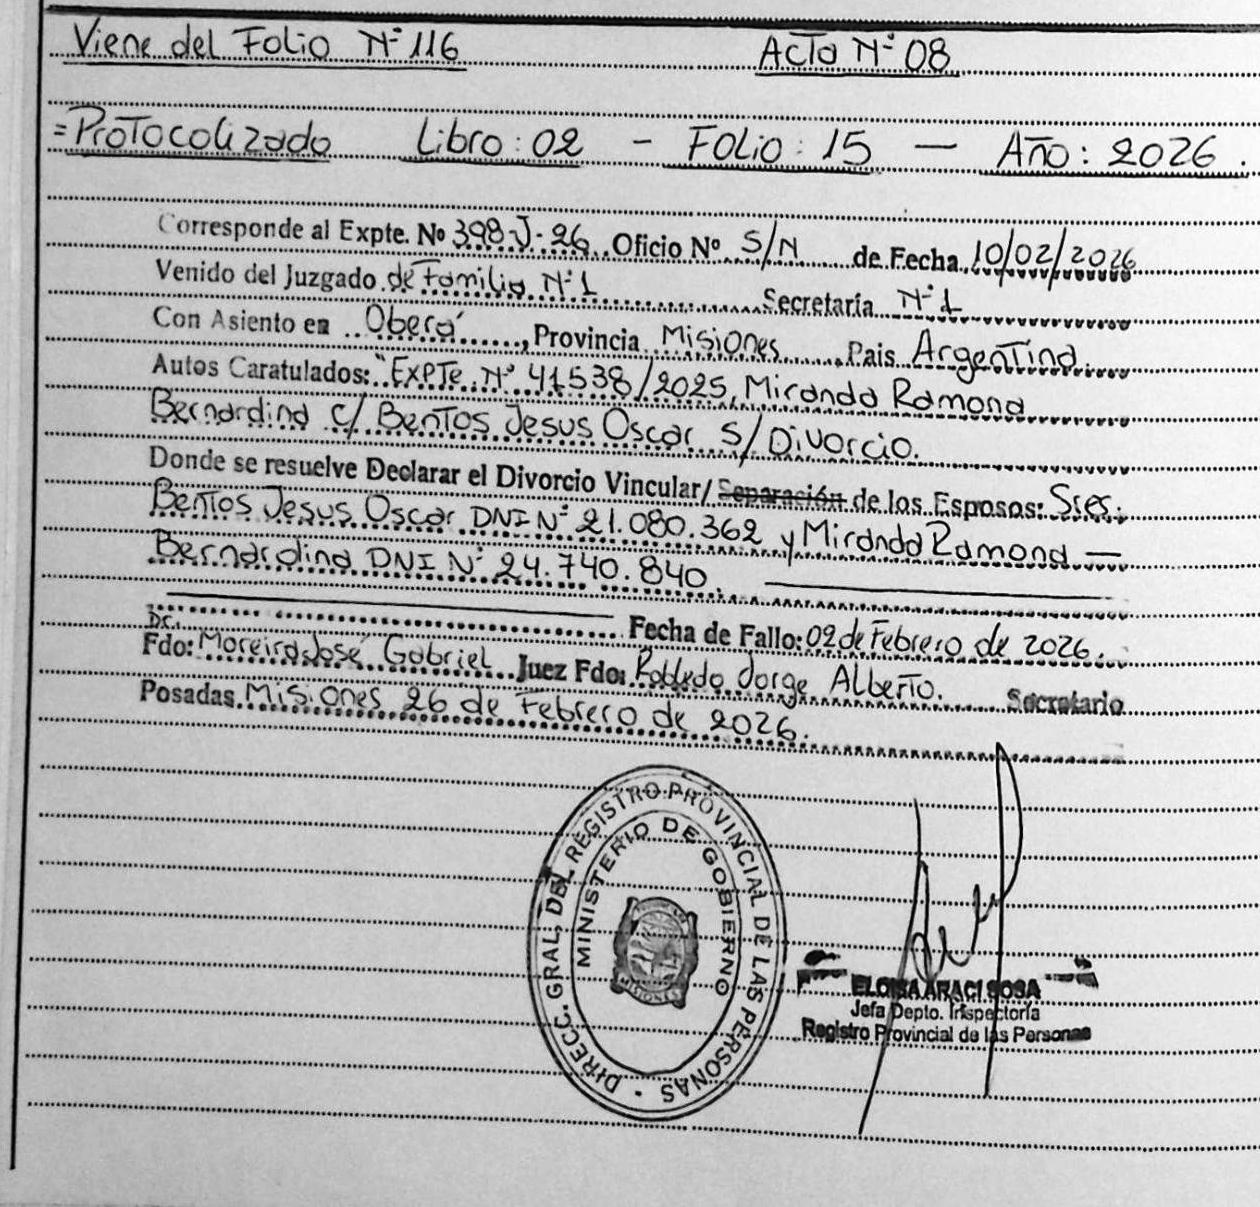 Viene del Folio Nº 116 Acta Nº 08
=Protocolizado Libro: 02 - Folio: 15 — Año: 2026.
Corresponde al Expte. Nº 398-J-26 Oficio Nº S/N de Fecha 10/02/2026
Venido del Juzgado de Familia Nº 1 Secretaría Nº 1
Con Asiento en Oberá, Provincia Misiones, Pais Argentina.
Autos Caratulados: "Expte. Nº 41538/2025, Miranda Ramona
Bernardina c/ Bentos Jesus Oscar s/ Divorcio.
Donde se resuelve Declarar el Divorcio Vincular/ Separación de los Esposos: Sres.
Bentos Jesus Oscar DNI Nº 21.080.362 y Miranda Ramona —
Bernardina DNI Nº 24.740.840.
Fecha de Fallo: 02 de Febrero de 2026.
Dr.
Fdo: Moreira José Gabriel Juez Fdo: Robledo Jorge Alberto. Secretario
Posadas, Misiones 26 de Febrero de 2026.
DIRECC. GRAL. DEL REGISTRO PROVINCIAL DE LAS PERSONAS
MINISTERIO DE GOBIERNO
MISIONES
ELOISA ARACI SOSA
Jefa Depto. Inspectoría
Registro Provincial de las Personas